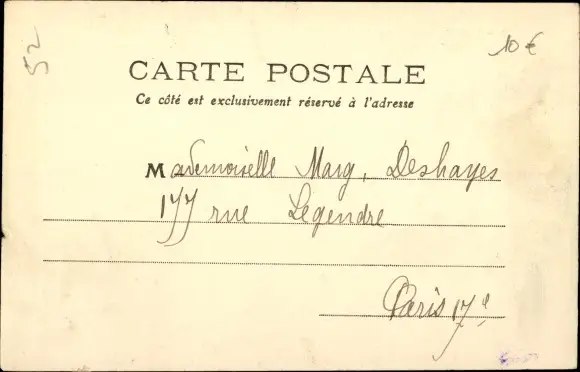 52
10 €
CARTE POSTALE
Ce côté est exclusivement réservé à l'adresse
Mademoiselle Marg, Deshayes
177 rue Legendre
Paris 17e